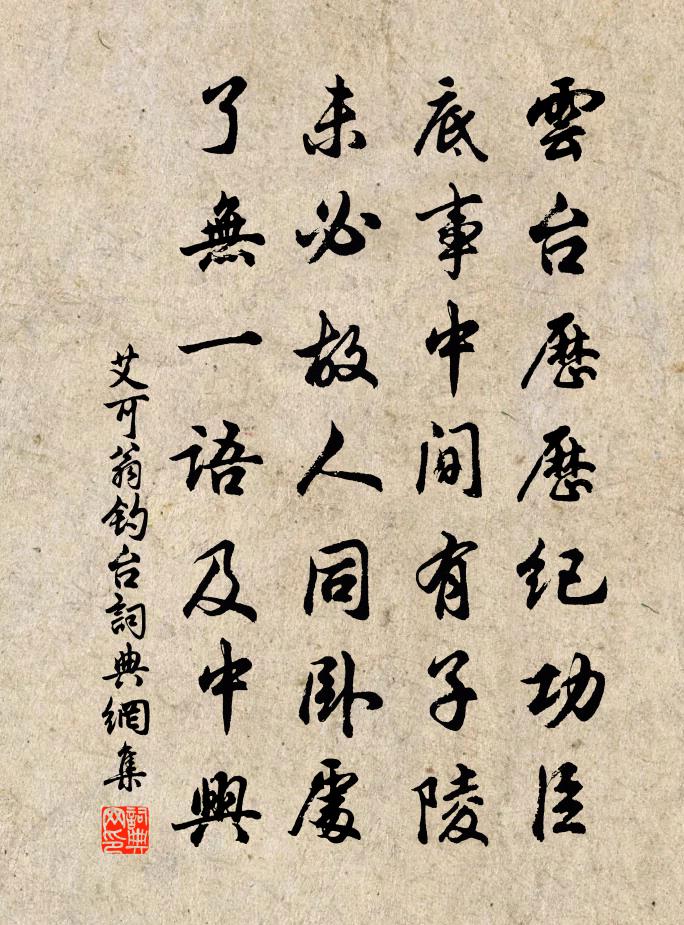 雲台歷歷紀功臣
底事中間有子陵
未必故人同臥處
了無一語及中興
艾可翁釣台詞典網集
詞典網印